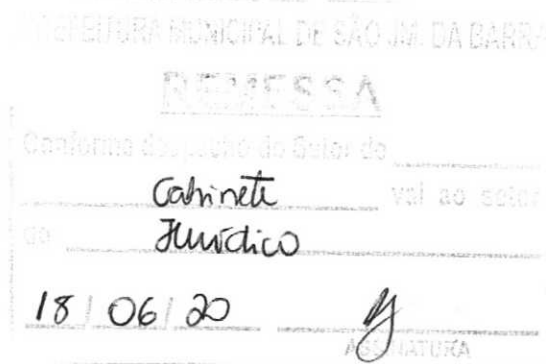 PREFEITURA MUNICIPAL DE SÃO JM. DA BARRA
REMESSA
Conforme despacho do Setor de
Gabinete vai ao setor
de Jurídico
18/06/20
ASSINATURA